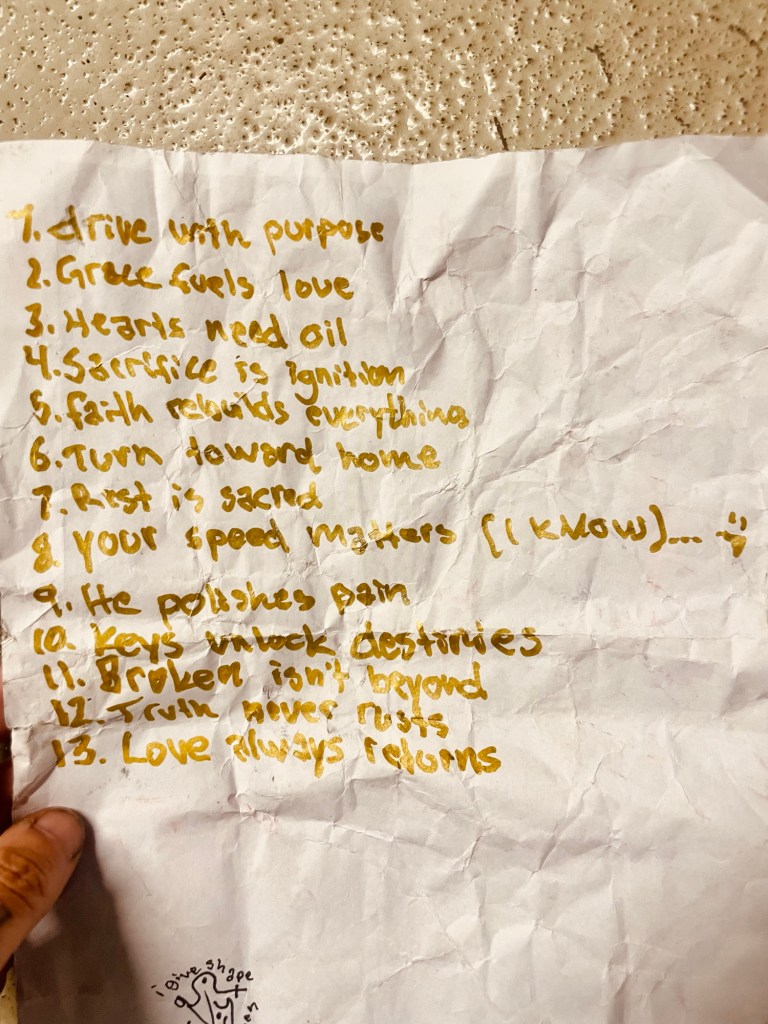 1. drive with purpose
2. Grace fuels love
3. Hearts need oil
4. Sacrifice is ignition
5. faith rebuilds everything
6. Turn toward home
7. Rest is sacred
8. your speed matters (I KNOW)...
9. He polishes pain
10. Keys unlock destinies
11. Broken isn't beyond
12. Truth never rusts
13. Love always returns
i give shape